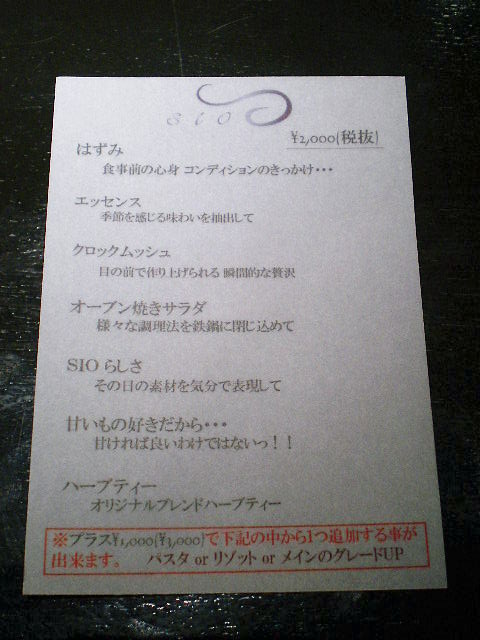 SIO
¥2,000(税抜)
はずみ
食事前の心身 コンディションのきっかけ・・・
エッセンス
季節を感じる味わいを抽出して
クロックムッシュ
目の前で作り上げられる 瞬間的な贅沢
オーブン焼きサラダ
様々な調理法を鉄鍋に閉じ込めて
SIO らしさ
その日の素材を気分で表現して
甘いもの好きだから・・・
甘ければ良いわけではないっ！！
ハーブティー
オリジナルブレンドハーブティー
※プラス¥1,000(¥3,000)で下記の中から1つ追加する事が
出来ます。 パスタ or リゾット or メインのグレードUP